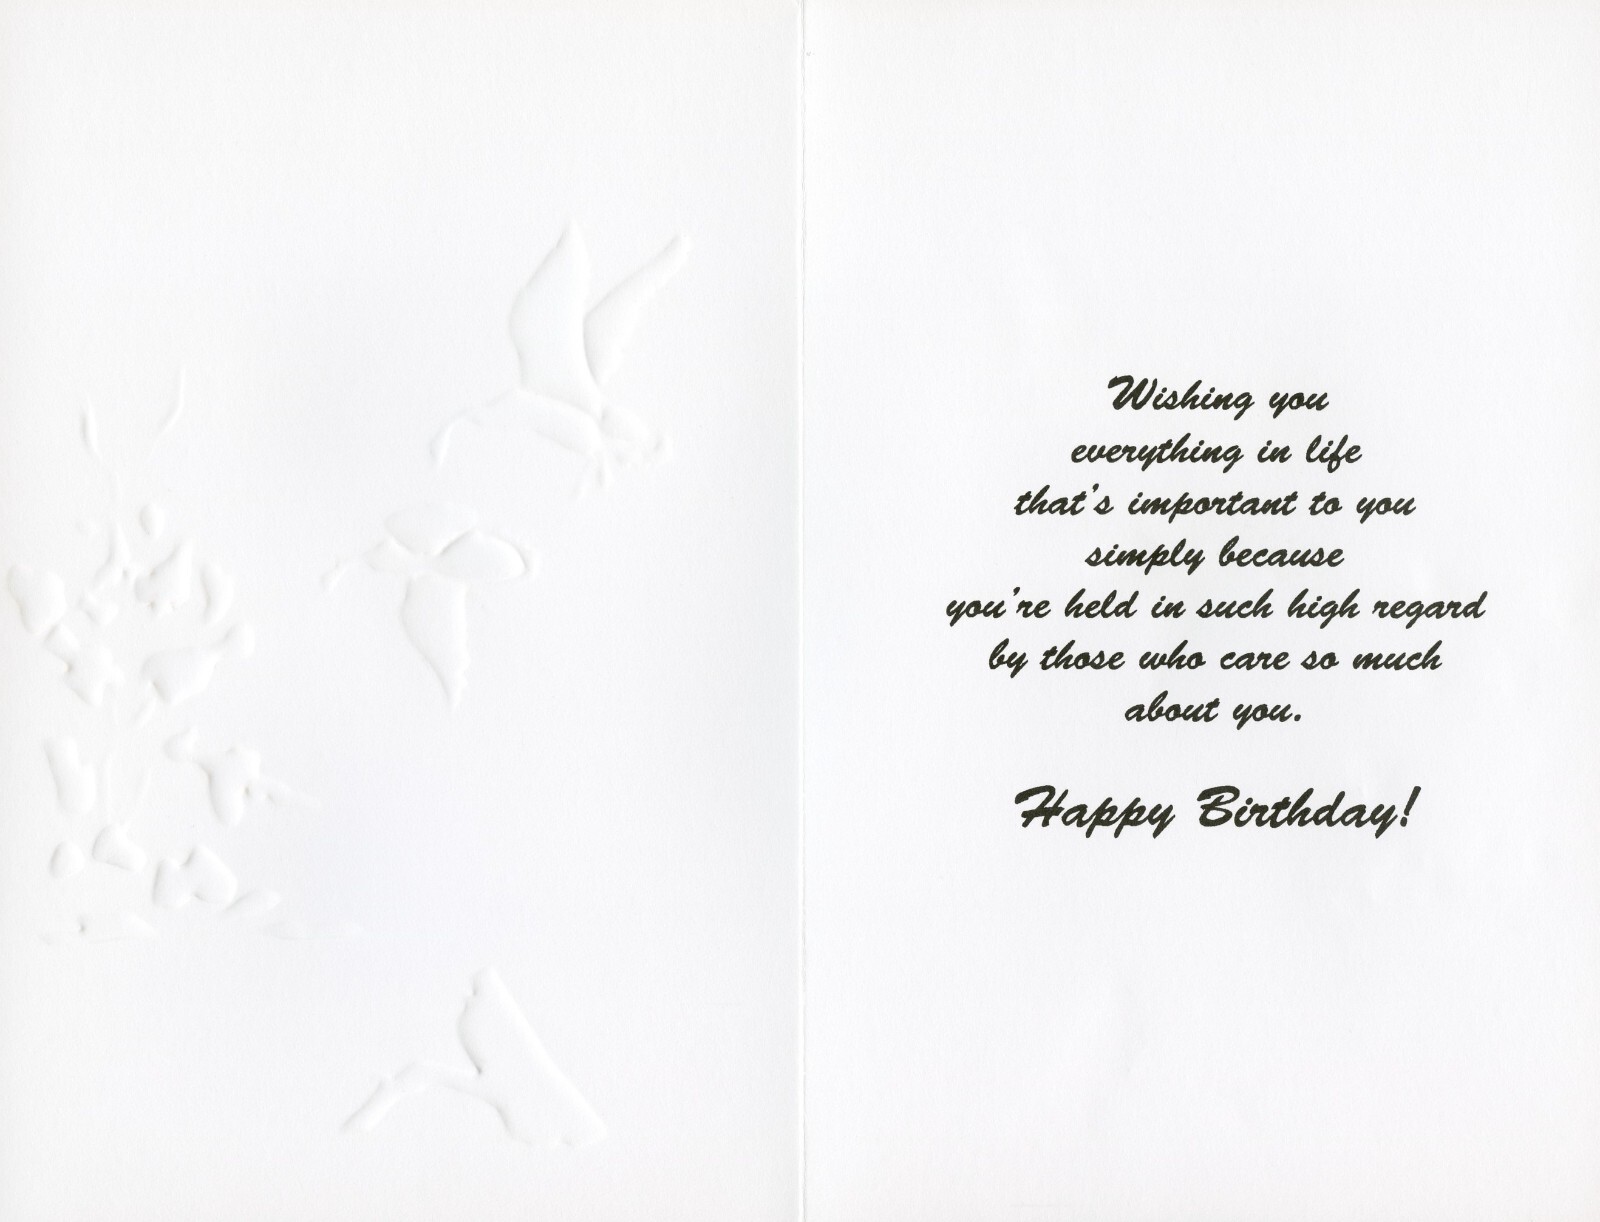 Wishing you
everything in life
that's important to you
simply because
you're held in such high regard
by those who care so much
about you.
Happy Birthday!